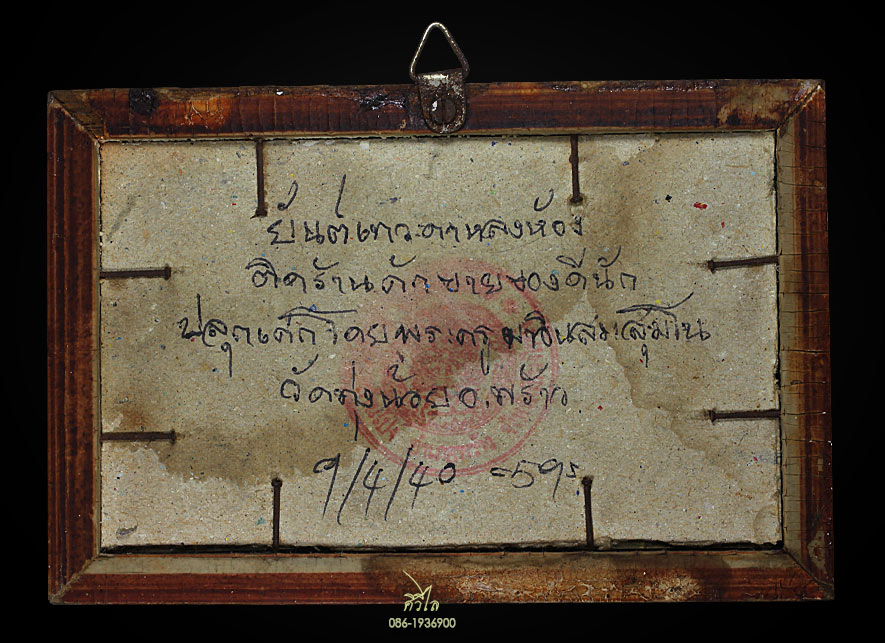 ยันต์เทวะดาหลงห้อง
ติดร้านค้าขายของดีนัก
ปลุกเศกโดยพระครู
วัดทุ่งน้อย อ.พร้าว
9/4/40 =59ร
ศิวิไล
086-1936900